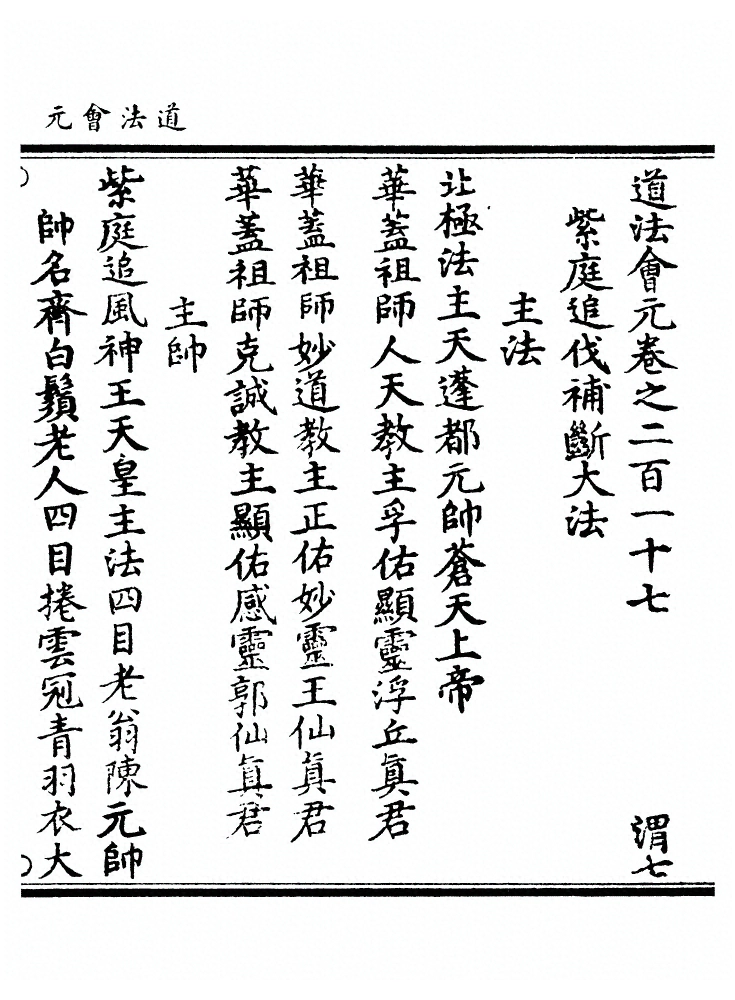 道法會元
道法會元卷之二百一十七 渭七
紫庭追伐補斷大法
主法
北極法主天蓬都元帥蒼天上帝
華蓋祖師人天教主孚佑顯靈浮丘眞君
華蓋祖師妙道教主正佑妙靈王仙眞君
華蓋祖師克誠教主顯佑感靈郭仙眞君
主帥
紫庭追風神王天皇主法四目老翁陳元帥
帥名齊白鬚老人四目捲雲冠青羽衣大